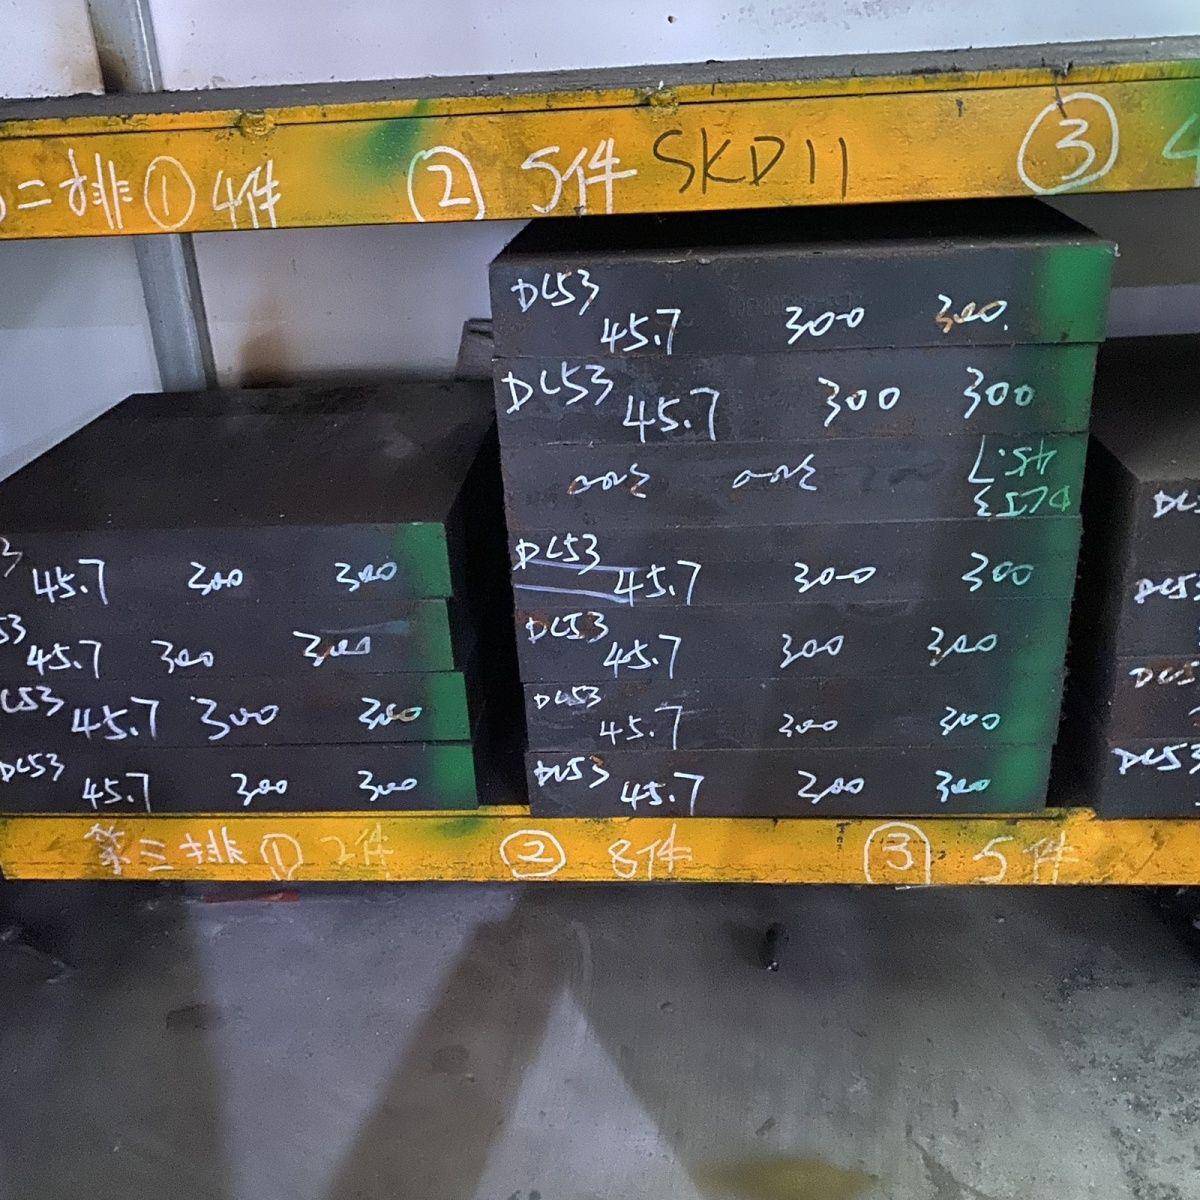 二排 ① 4件 ② 5件 SKD11 ③ 4
DC53 45.7 300 300
DC53 45.7 300 300
300 300 45.7 DC53
DC53 45.7 300 300
DC53 45.7 300 300
DC53 45.7 300 300
DC53 45.7 300 300
3 45.7 300 300
53 45.7 300 300
C53 45.7 300 300
DC53 45.7 300 300
DC5
DC53
DC5
DC53
第三排 ① 2件 ② 8件 ③ 5件